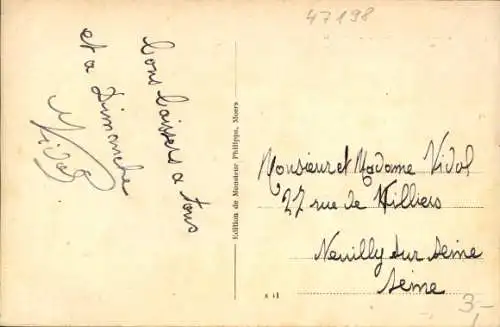 47198
Bons baisers a tous
et a Dimanche
Vidal
Edition de Monsieur Philippe, Moers
Monsieur et Madame Vidal
27 rue de Villiers
Neuilly sur Seine
Seine
x 11
3-